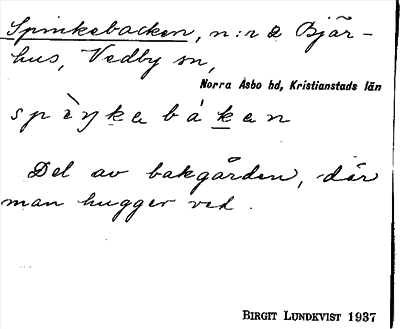 Spinkebacken, n:r 2 Bjär-
hus, Vedby sn,
Norra Åsbo hd, Kristianstads län
spìŋke bákan
Del av bakgården, där
man hugger ved.
BIRGIT LUNDKVIST 1937